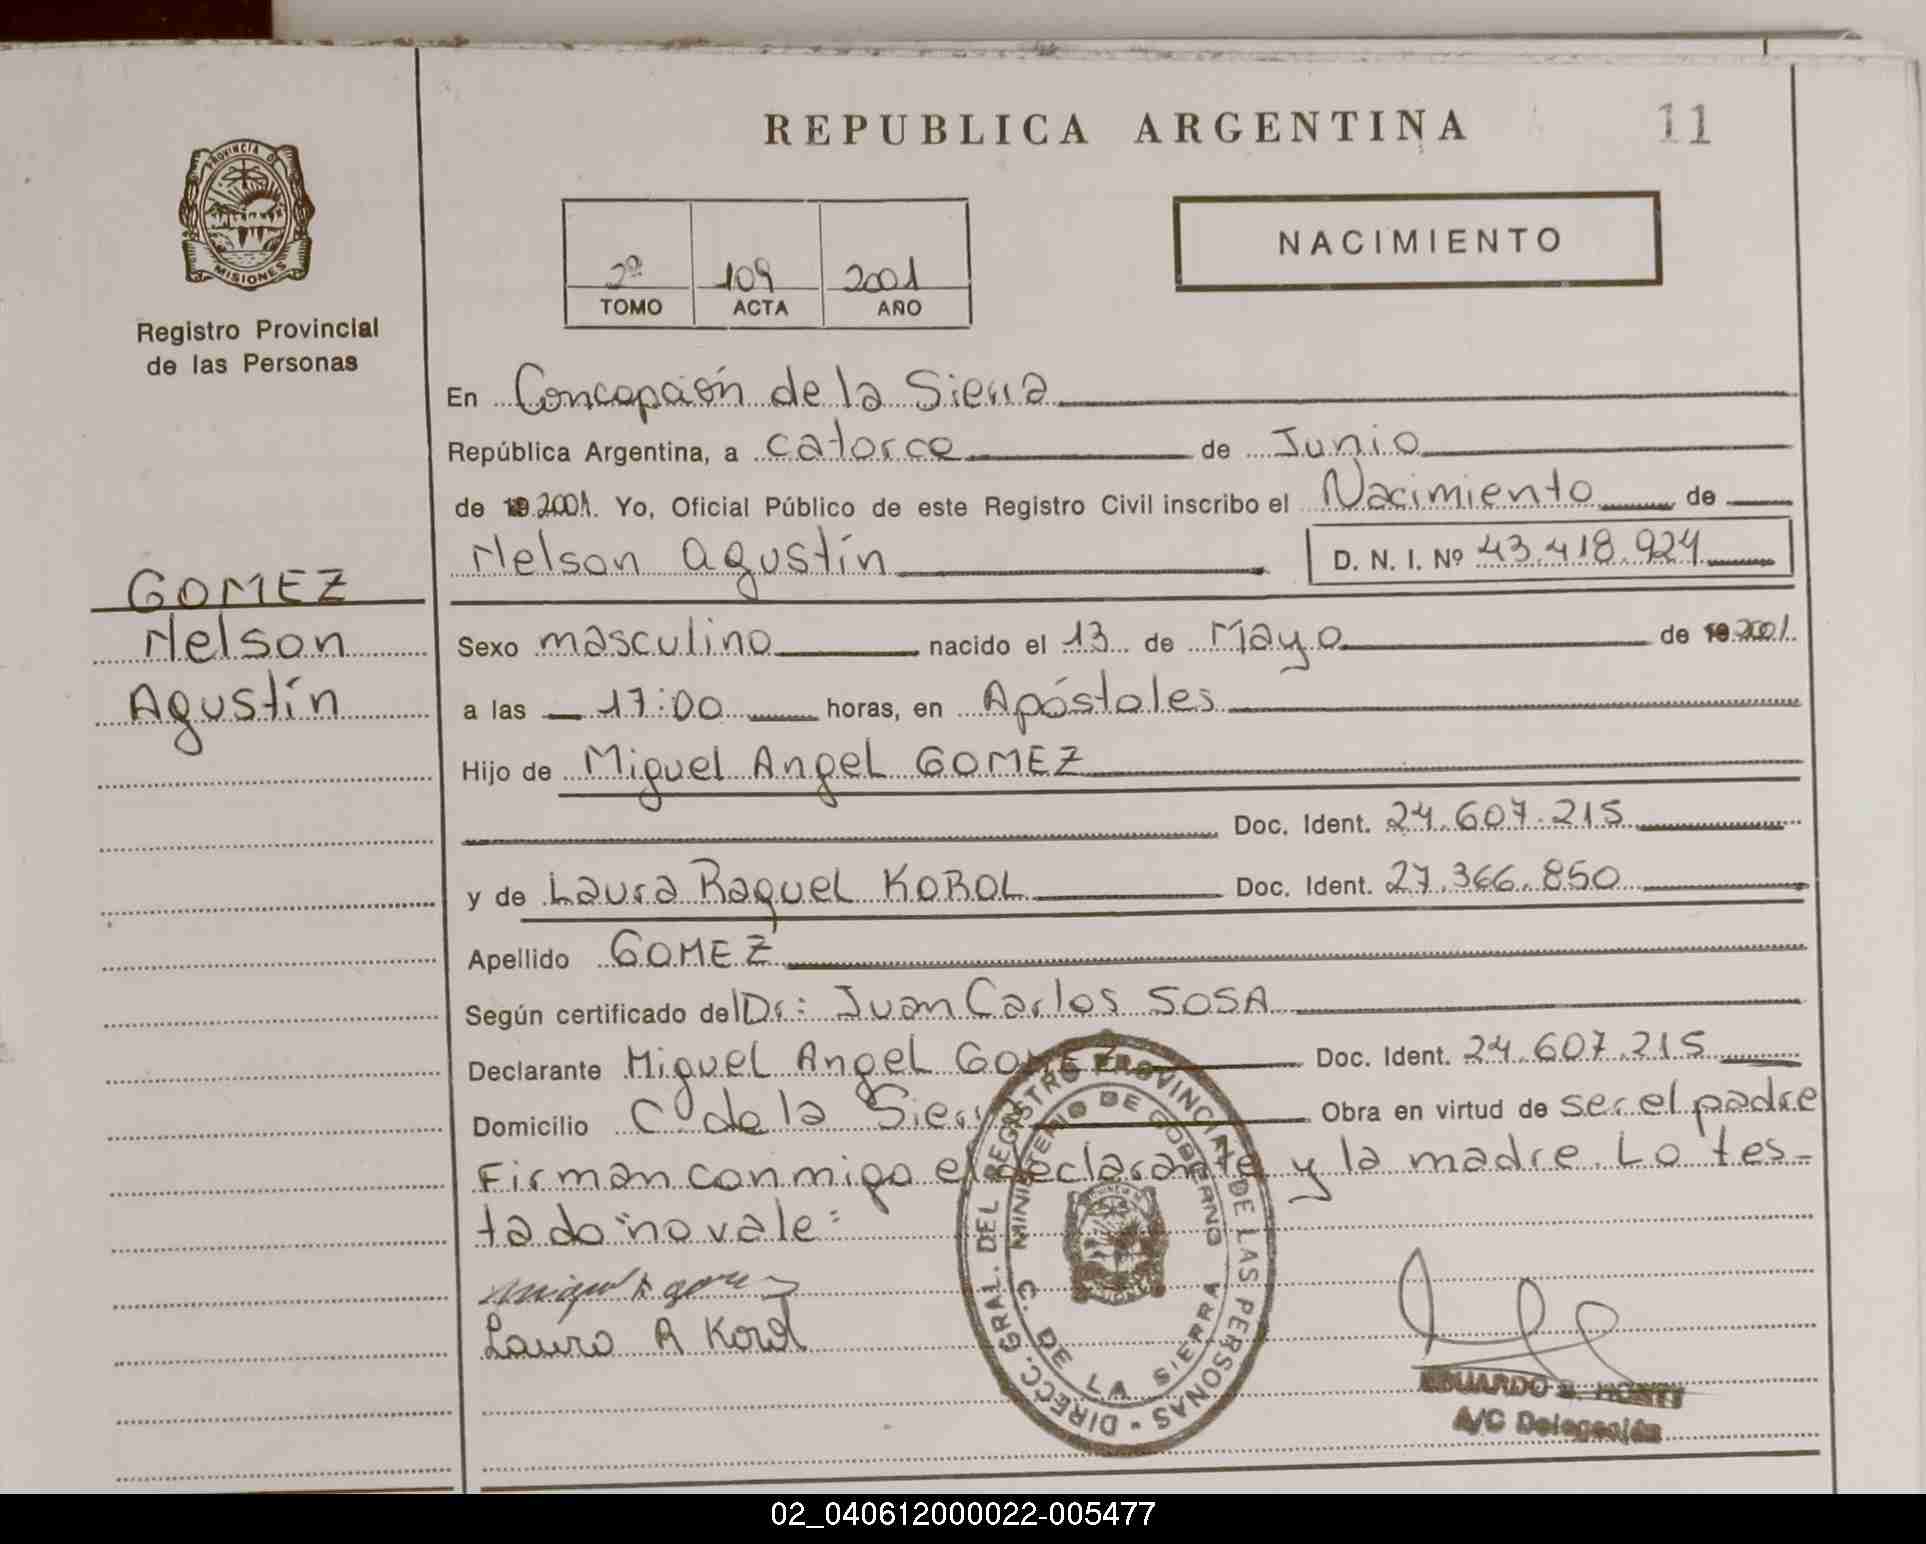 REPUBLICA ARGENTINA
11
PROVINCIA DE
MISIONES
Registro Provincial
de las Personas
NACIMIENTO
2º 109 2001
TOMO ACTA AÑO
En Concepción de la Sierra
República Argentina, a catorce de Junio
de 19 2001. Yo, Oficial Público de este Registro Civil inscribo el Nacimiento de
Nelson Agustín D. N. I. Nº 43.418.924
GOMEZ
Nelson
Agustín
Sexo masculino nacido el 13 de Mayo de 19 2001.
a las 17:00 horas, en Apóstoles
Hijo de Miguel Angel GOMEZ
Doc. Ident. 24.607.215
y de Laura Raquel KOROL Doc. Ident. 27.366.850
Apellido GOMEZ
Según certificado del Dr: Juan Carlos SOSA
Declarante Miguel Angel GOMEZ Doc. Ident. 24.607.215
Domicilio C de la Sierra Obra en virtud de ser el padre
Firman conmigo el declarante y la madre. Lo tes-
tado "no vale:
Miguel A Gomez
Laura R Korol
DIRECC. GRAL. DEL REGISTRO PROVINCIAL DE LAS PERSONAS -
MINISTERIO DE GOBIERNO
C. DE LA SIERRA
EDUARDO
A/C Delegación
02_040612000022-005477